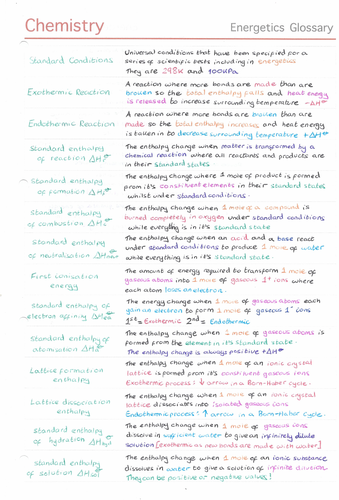 Chemistry
Energetics Glossary
Standard Conditions
Universal conditions that have been specified for a
series of scientific tests including in energetics
They are 298K and 100kPa
Exothermic Reaction
A reaction where more bonds are made than are
broken so the total enthalpy falls and heat energy
is released to increase surrounding temperature -ΔH
Endothermic Reaction
A reaction where more bonds are broken than are
made so the total enthalpy increases and heat energy
is taken in to decrease surrounding temperature +ΔH
Standard enthalpy
of reaction ΔH
The enthalpy change when matter is transformed by a
chemical reaction where all reactants and products are
in their standard states
Standard enthalpy
of formation ΔH
The enthalpy change where 1 mole of product is formed
from it's constituent elements in their standard states
whilst under standard conditions.
Standard enthalpy
of combustion ΔH
The enthalpy change when 1 mole of a compound is
burned completely in oxygen under standard conditions
while everything is in it's standard state
Standard enthalpy
of neutralisation ΔH
The enthalpy change when an acid and a base react
under standard conditions to produce 1 mole of water
while everything is in it's standard state.
First ionisation
energy
The amount of energy required to transform 1 mole of
gaseous atoms into 1 mole of gaseous 1+ ions where
each atom loses an electron.
Standard enthalpy of
electron affinity ΔH
The energy change when 1 mole of gaseous atoms each
gain an electron to form 1 mole of gaseous 1- ions
1st = Exothermic 2nd = Endothermic
Standard enthalpy of
atomisation ΔH
The enthalpy change when 1 mole of gaseous atoms is
formed from the element in it's standard state.
The enthalpy change is always positive +ΔH
Lattice formation
enthalpy
The enthalpy change when 1 mole of an ionic crystal
lattice is formed from it's constituent gaseous ions
Exothermic process: ↓ arrow in a Born-Haber cycle.
Lattice dissociation
enthalpy
The enthalpy change when 1 mole of an ionic crystal
lattice dissociates into isolated gaseous ions
Endothermic process: ↑ arrow in a Born-Haber cycle.
Standard enthalpy
of hydration ΔH
The enthalpy change when 1 mole of gaseous ions
dissolve in sufficient water to give an infinitely dilute
solution [exothermic as new bonds are made with water]
Standard enthalpy
of solution ΔH
The enthalpy change when 1 mole of an ionic substance
dissolves in water to give a solution of infinite dilution
They can be positive or negative values!